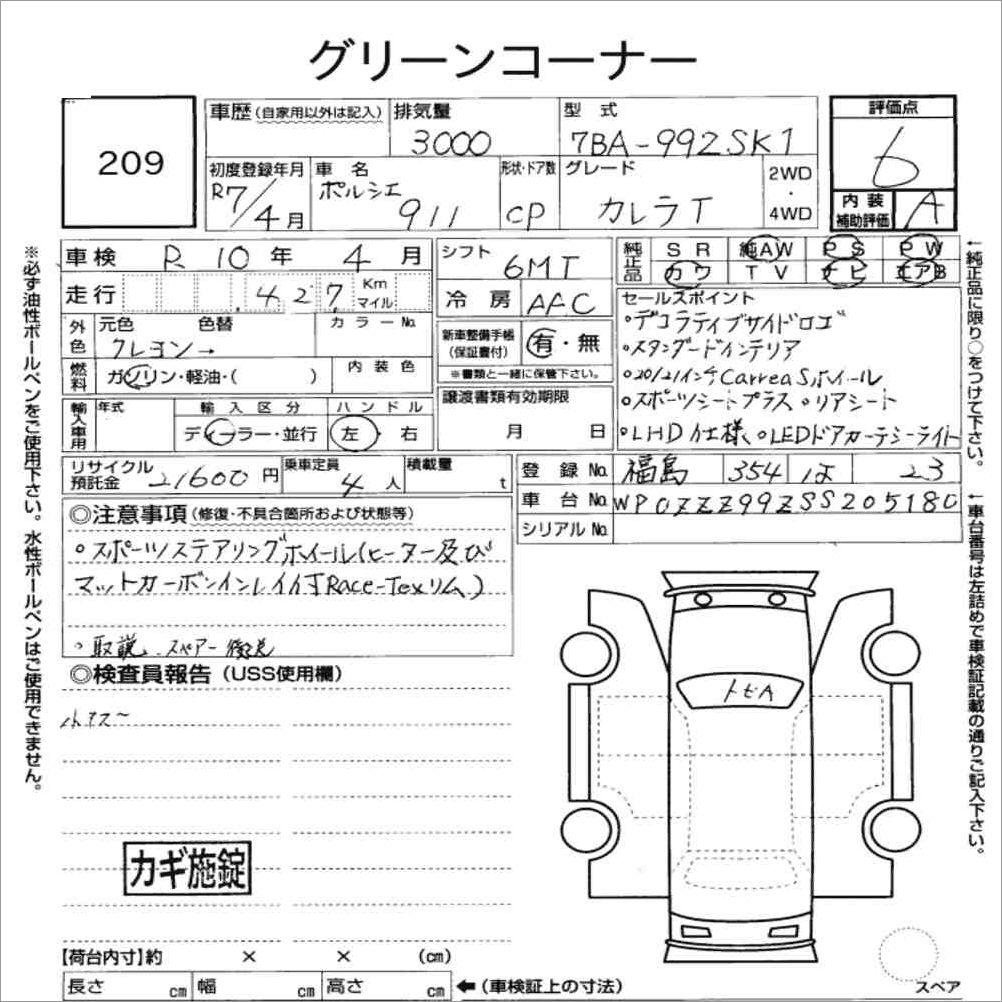 グリーンコーナー
209
車歴(自家用以外は記入)
排気量
3000
型式
7BA-992SK1
評価点
6
初度登録年月
R7/4月
車名
ポルシェ
911
形状・ドア数
CP
グレード
カレラT
2WD
・
4WD
内装
補助評価
A
車検 R 10年 4月
シフト
6MT
純正品
SR 純AW PS PW
カワ TV ナビ エアB
走行 4 2 7 Km
マイル
冷房 AAC
セールスポイント
外色
元色 色替 カラーNo.
クレヨン→
新車整備手帳
(保証書付)
有・無
※書類と一緒に保管下さい。
◦デコラティブサイドロゴ
◦スタンダードインテリア
◦20/21インチCarreaSホイール
◦スポーツシートプラス ◦リアシート
◦LHD仕様、◦LEDドアカーテシーライト
燃料
ガソリン・軽油・( )
内装色
譲渡書類有効期限
月 日
輸入車用
年式
輸入区分
ディーラー・並行
ハンドル
左・右
リサイクル
預託金
21600円
乗車定員
4人
積載量
t
登録No. 福島 354 は 23
車台No. WP0ZZZ99ZSS205180
シリアルNo.
◎注意事項(修復・不具合箇所および状態等)
◦スポーツステアリングホイール(ヒーター及び
マットカーボンインレイ付Race-Texリム)
◦取説、スペアー後送
◎検査員報告(USS使用欄)
カギ施錠
トビA
【荷台内寸】約 × × (cm)
長さ cm 幅 cm 高さ cm ←(車検証上の寸法)
スペア
※必ず油性ボールペンをご使用下さい。水性ボールペンはご使用できません。
←純正品に限り○をつけて下さい。
←車台番号は左詰めで車検証記載の通りご記入下さい。